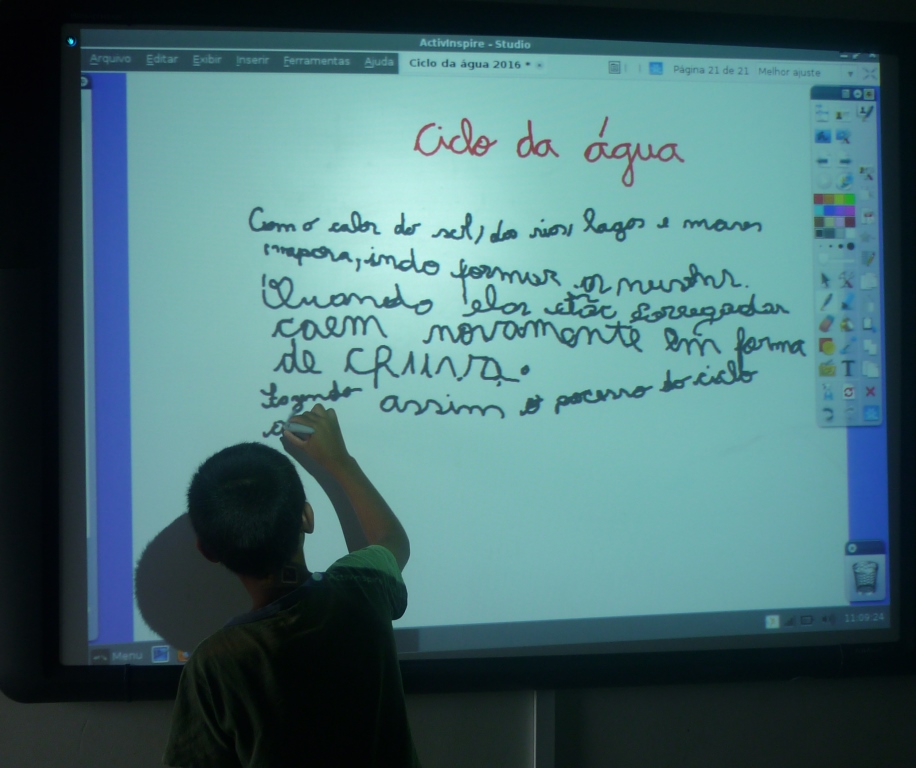 ActivInspire - Studio
Arquivo Editar Exibir Inserir Ferramentas Ajuda Ciclo da água 2016 * Página 21 de 21 Melhor ajuste
Ciclo da água
Com o calor do sol, dos rios, lagos e mares
indo formar as
Quando elas estão carregadas
caem novamente em forma
de
assim o pocesso do ciclo
Menu 11:09:24